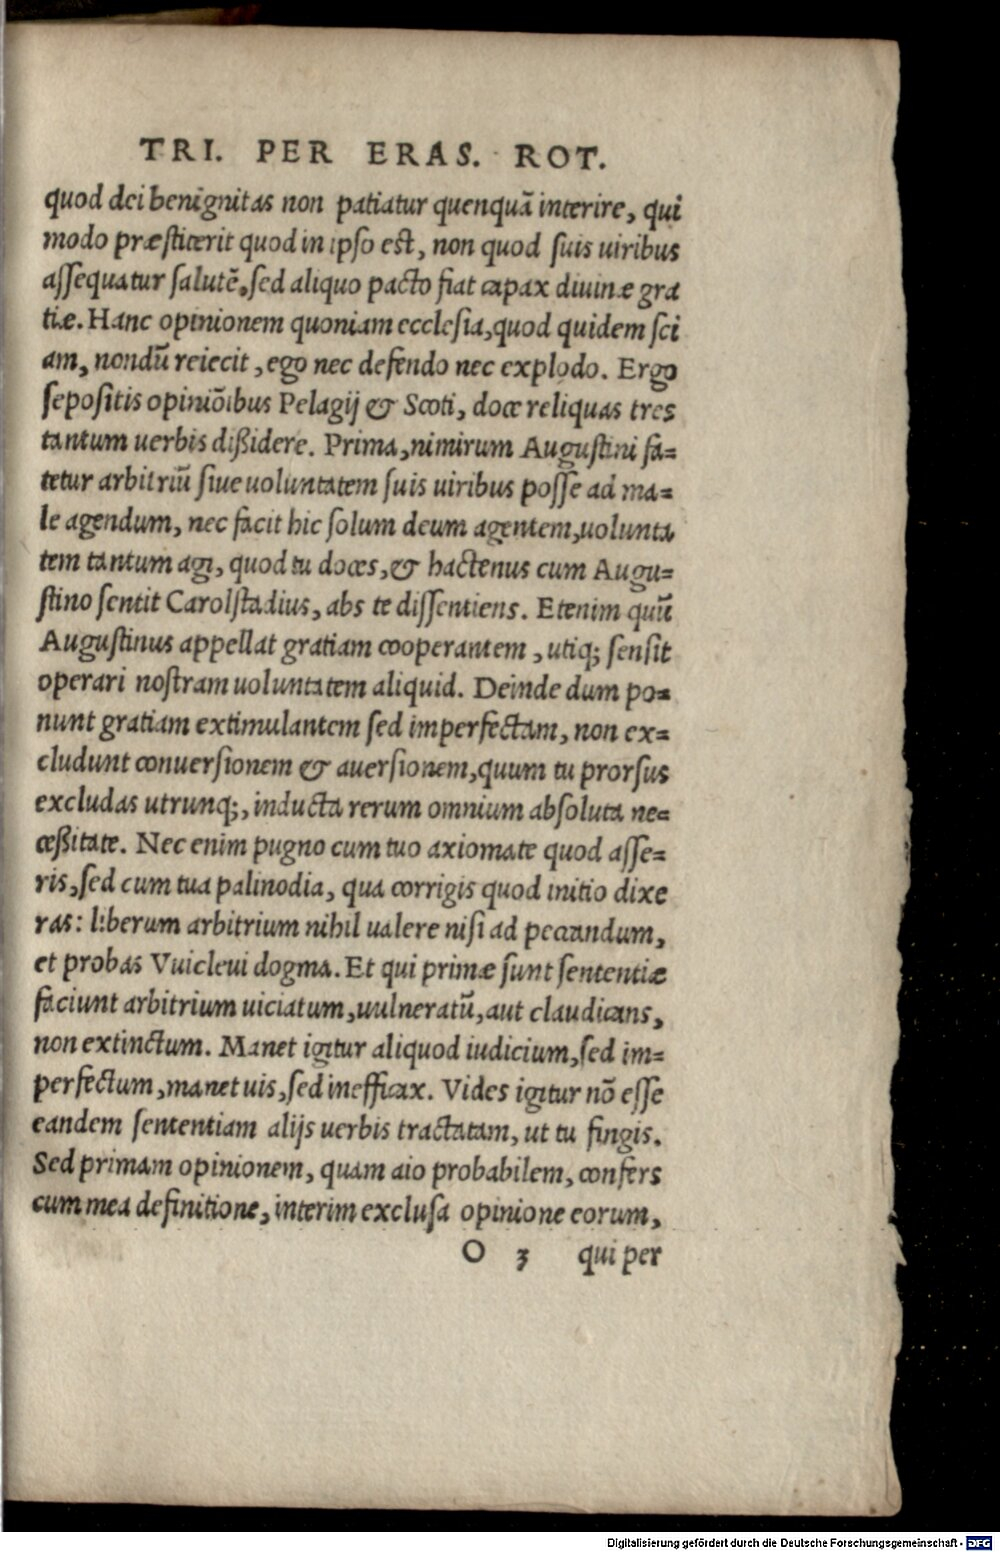 TRI. PER ERAS. ROT.
quod dei benignitas non patiatur quenquā interire, qui
modo præstiterit quod in ipso est, non quod suis uiribus
assequatur salutē, sed aliquo pacto fiat capax diuinæ gra
tiæ. Hanc opinionem quoniam ecclesia, quod quidem sci
am, nondū reiecit, ego nec defendo nec explodo. Ergo
sepositis opiniōibus Pelagij & Scoti, doce reliquas tres
tantum uerbis dißidere. Prima, nimirum Augustini fa=
tetur arbitriū siue uoluntatem suis uiribus posse ad ma=
le agendum, nec facit hic solum deum agentem, uolunta
tem tantum agi, quod tu doces, & hactenus cum Augu=
stino sentit Carolstadius, abs te dissentiens. Etenim quū
Augustinus appellat gratiam cooperantem, utiq; sensit
operari nostram uoluntatem aliquid. Deinde dum po=
nunt gratiam extimulantem sed imperfectam, non ex=
cludunt conuersionem & auersionem, quum tu prorsus
excludas utrunq;, inducta rerum omnium absoluta ne=
ceßitate. Nec enim pugno cum tuo axiomate quod asse=
ris, sed cum tua palinodia, qua corrigis quod initio dixe
ras: liberum arbitrium nihil ualere nisi ad peccandum,
et probas Vuicleui dogma. Et qui primæ sunt sententiæ
faciunt arbitrium uiciatum, uulneratū, aut claudicans,
non extinctum. Manet igitur aliquod iudicium, sed im=
perfectum, manet uis, sed inefficax. Vides igitur nō esse
eandem sententiam alijs uerbis tractatam, ut tu fingis.
Sed primam opinionem, quam aio probabilem, confers
cum mea definitione, interim exclusa opinione eorum,
O 3 qui per
Digitalisierung gefördert durch die Deutsche Forschungsgemeinschaft - DFG